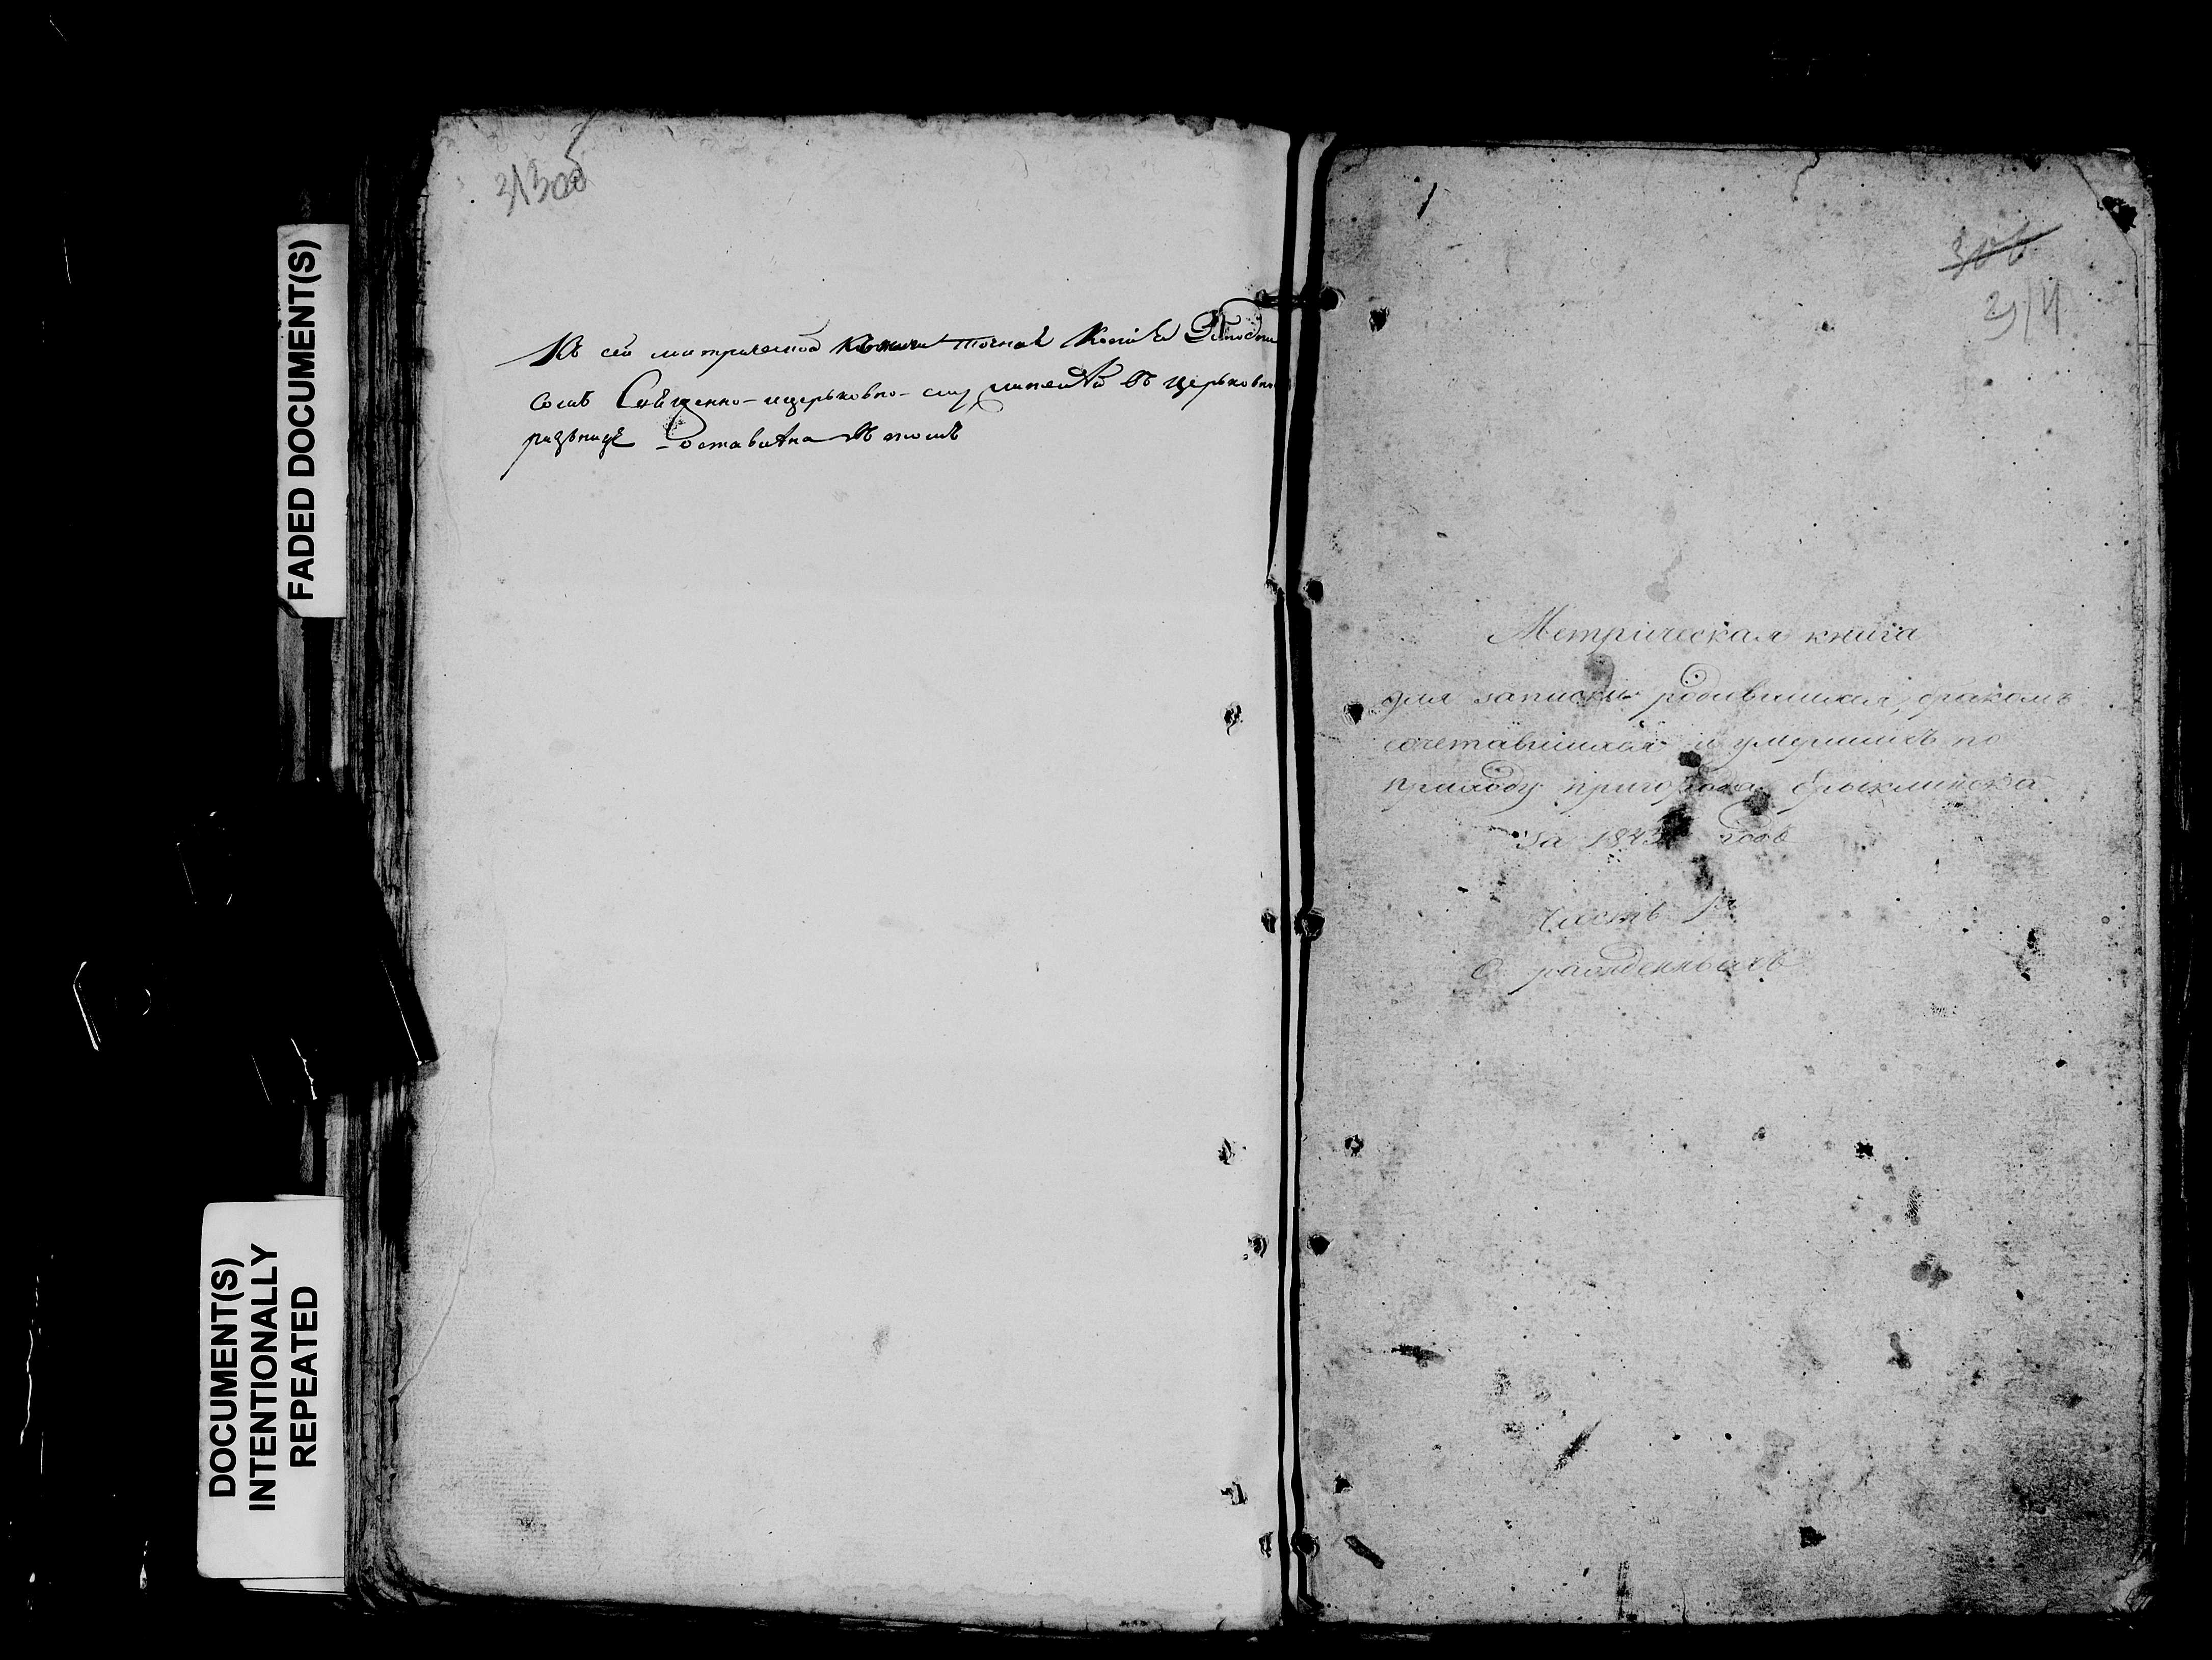 FADED DOCUMENT(S)
DOCUMENT(S)
INTENTIONALLY
REPEATED
Къ сей метрической книги точная Копія
Священно-церьковно-служителей въ церьковно
ризницѣ оставлена въ томъ
306
314
Метрическая книга
для записки родившихся, бракомъ
сочетавшихся и умершихъ по
приходу пригорода Ерыклинска
за 1843 годъ
Часть 1я
О рожденныхъ